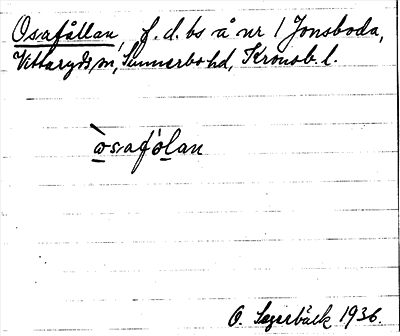 Osafållan, f.d. bs å nr 1 Jonsboda,
Vittaryds sn, Sunnerbo hd, Kronob. l.
òsafólan
O. 1936.